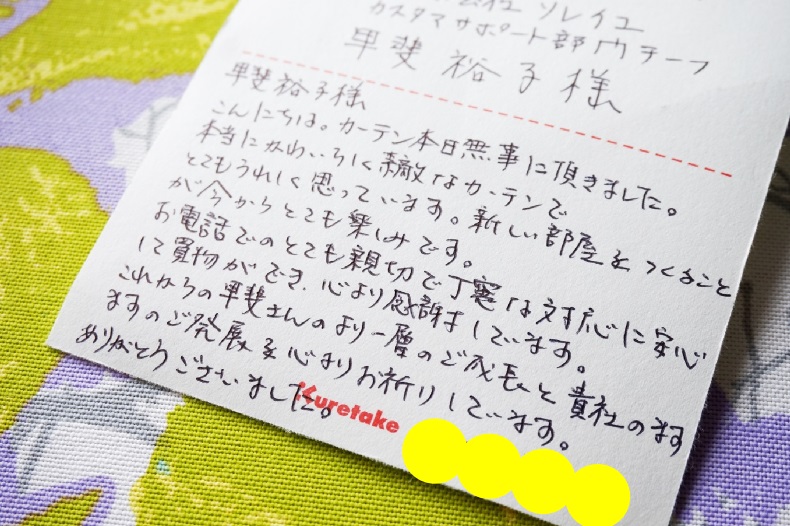 ソレイユ
カスタマサポート部門チーフ
甲斐 裕子様
甲斐裕子様
こんにちは。カーテン本日無事に頂きました。
本当にかわいらしく素敵なカーテンで
とてもうれしく思っています。新しい部屋をつくること
が今からとても楽しみです。
お電話でのとても親切で丁寧な対応に安心
して買物ができ、心より感謝しています。
これからの甲斐さんのより一層のご成長と貴社のます
ますのご発展を心よりお祈りしています。
ありがとうございました。
Kuretake